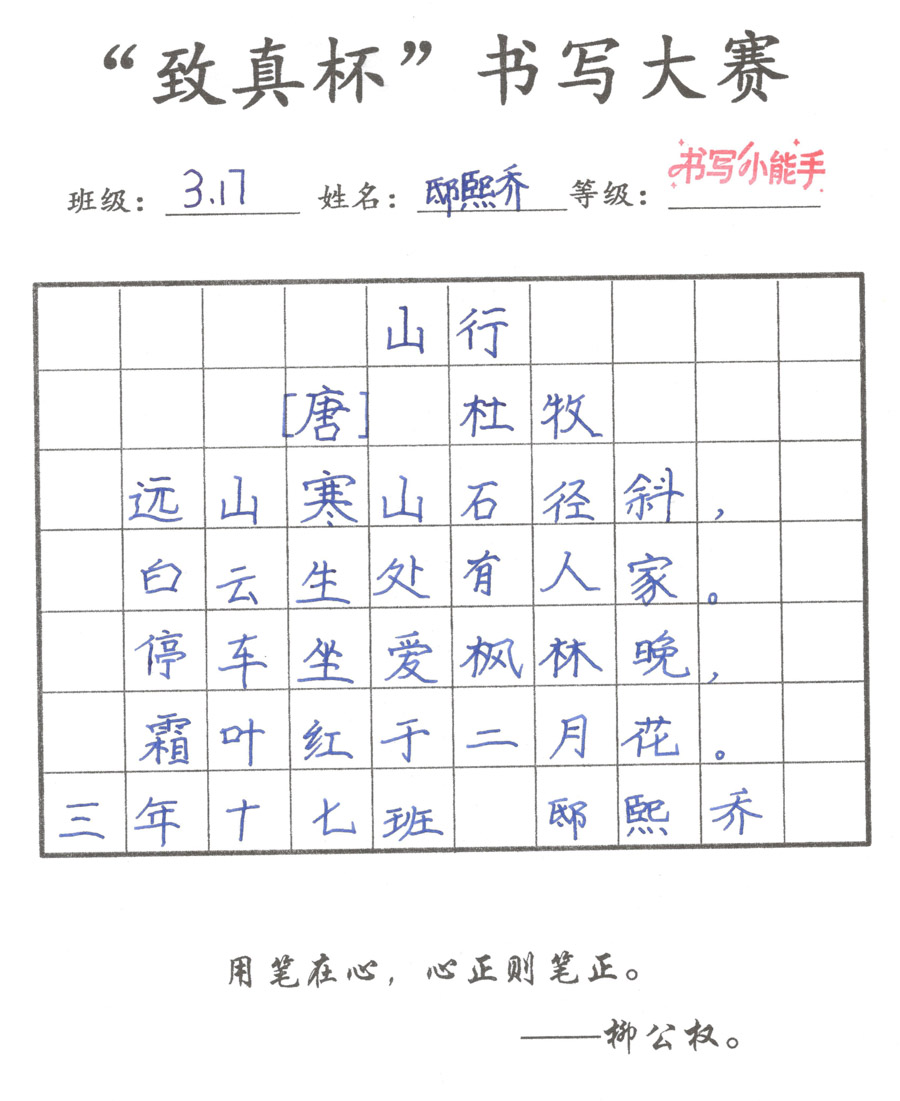 “致真杯”书写大赛
班级：3.17 姓名：邸熙乔 等级：书写小能手
山行
[唐] 杜牧
远山寒山石径斜，
白云生处有人家。
停车坐爱枫林晚，
霜叶红于二月花。
三年十七班 邸熙乔
用笔在心，心正则笔正。
——柳公权。